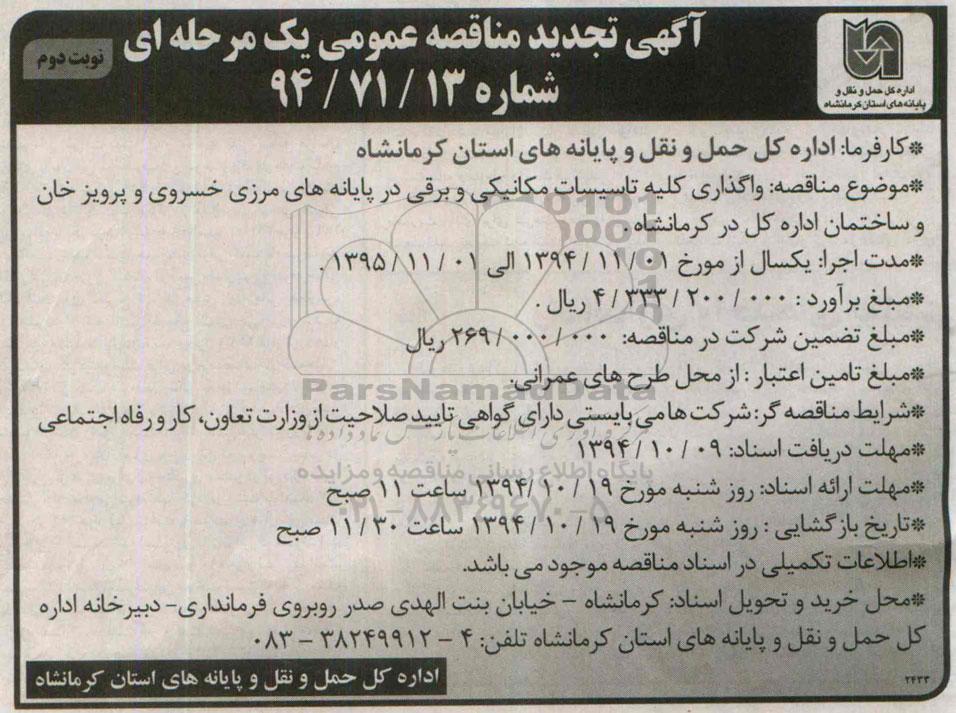 آگهی تجدید مناقصه عمومی یک مرحله ای
نوبت دوم
شماره ۱۳ / ۷۱ / ۹۴
اداره کل حمل و نقل و
پایانه های استان کرمانشاه
*کارفرما: اداره کل حمل و نقل و پایانه های استان کرمانشاه
*موضوع مناقصه: واگذاری کلیه تاسیسات مکانیکی و برقی در پایانه های مرزی خسروی و پرویز خان
و ساختمان اداره کل در کرمانشاه .
*مدت اجرا: یکسال از مورخ ۰۱ / ۱۱ / ۱۳۹۴ الی ۰۱ / ۱۱ / ۱۳۹۵ .
*مبلغ برآورد : ۰۰۰ / ۲۰۰ / ۳۳۳ / ۴ ریال .
*مبلغ تضمین شرکت در مناقصه: ۰۰۰ / ۰۰۰ / ۲۶۹ ریال
*مبلغ تامین اعتبار : از محل طرح های عمرانی.
ParsNamadData
*شرایط مناقصه گر: شرکت ها می بایستی دارای گواهی تایید صلاحیت از وزارت تعاون، کار و رفاه اجتماعی
*مهلت دریافت اسناد: ۰۹ / ۱۰ / ۱۳۹۴
پایگاه اطلاع رسانی مناقصه و مزایده
*مهلت ارائه اسناد: روز شنبه مورخ ۱۹ / ۱۰ / ۱۳۹۴ ساعت ۱۱ صبح
۰۲۱-۸۸۳۴۹۶۷۰-۵
*تاریخ بازگشایی : روز شنبه مورخ ۱۹ / ۱۰ / ۱۳۹۴ ساعت ۳۰ / ۱۱ صبح
*اطلاعات تکمیلی در اسناد مناقصه موجود می باشد.
*محل خرید و تحویل اسناد: کرمانشاه – خیابان بنت الهدی صدر روبروی فرمانداری- دبیرخانه اداره
کل حمل و نقل و پایانه های استان کرمانشاه تلفن: ۴ – ۳۸۲۴۹۹۱۲ – ۰۸۳
اداره کل حمل و نقل و پایانه های استان کرمانشاه
۲۴۳۳